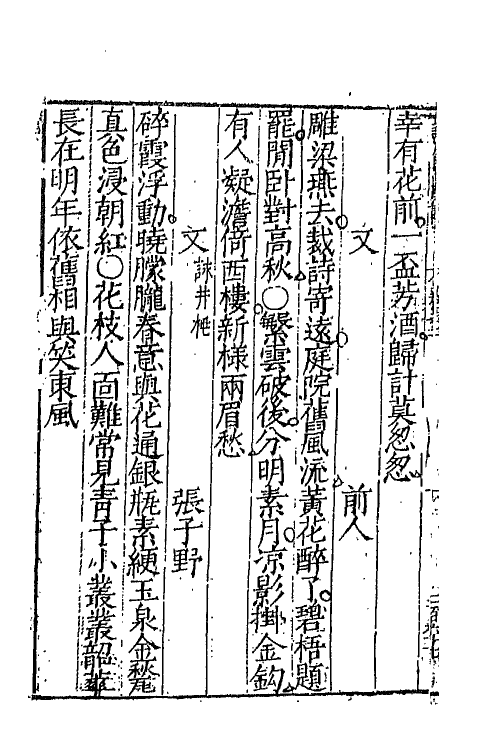 幸有花前一盃芳酒歸計莫怱怱
又　前人
雕梁燕去裁詩寄遠庭院舊風流黃花醉了碧梧題
罷閒卧對高秋〇繁雲破後分明素月凉影掛金鈎
有人凝澹倚西樓新様兩眉愁
又 詠井桃　張子野
碎霞浮動曉朦朧春意與花通銀瓶素綆玉泉金甃
真色浸朝紅〇花枝人面難常見青子小叢叢韶華
長在明年依舊相與笑東風